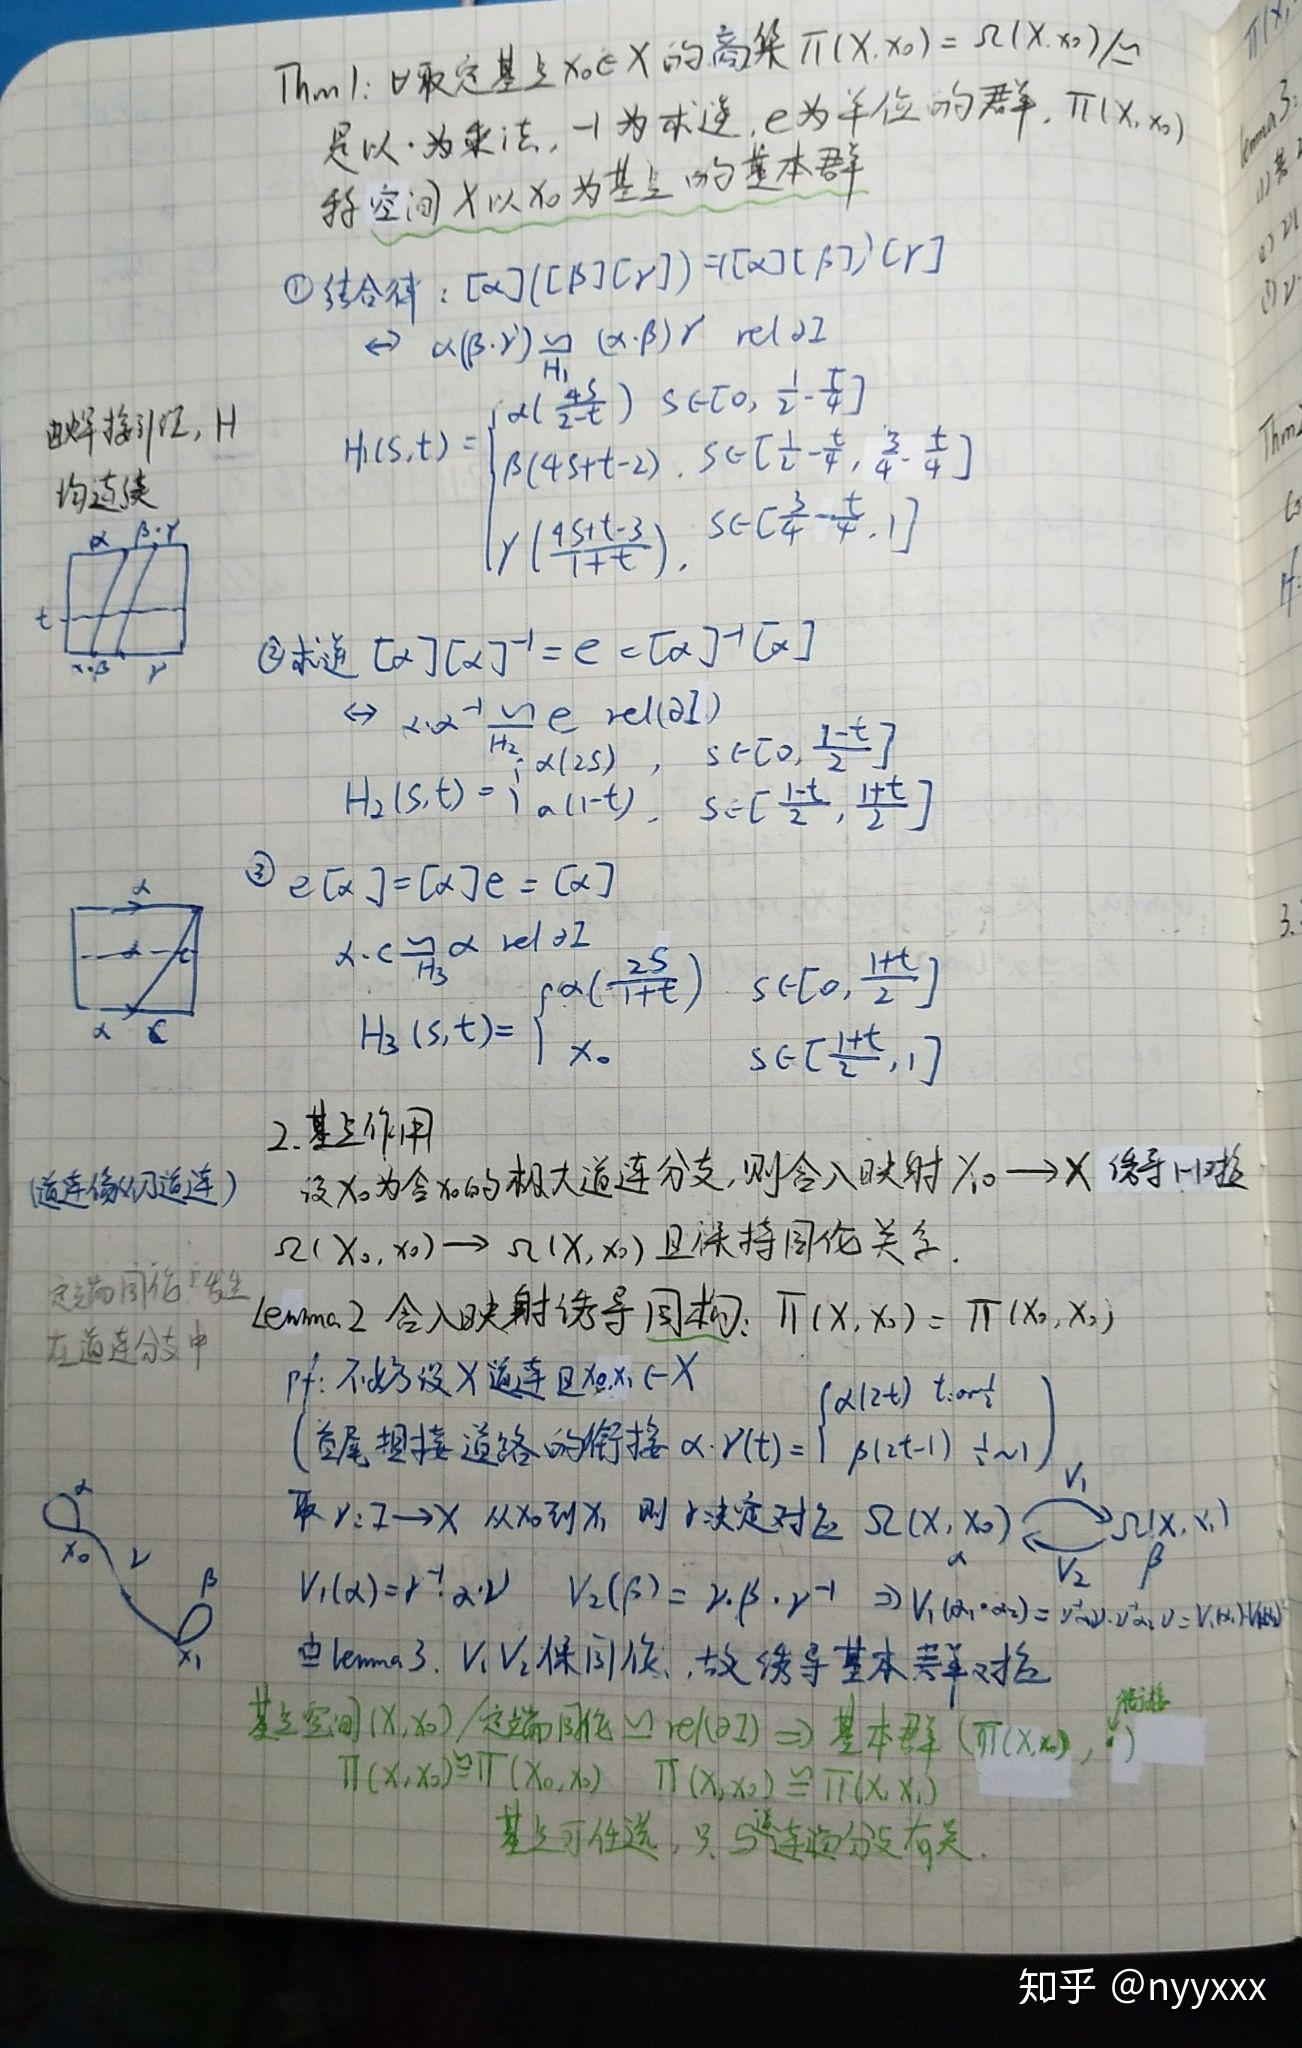 Thm1: ∀取定基点x₀∈X的商集π(X,x₀)=Ω(X,x₀)/≃
是以·为乘法,-1为求逆,e为单位的群,π(X,x₀)
称空间X以x₀为基点的基本群
①结合律:[α]([β][γ])=([α][β])[γ]
⇔ α(β·γ) ≃ (α·β)γ rel ∂I
H₁
由焊接引理,H
均连续
H₁(s,t)={α(4s/(2-t)) s∈[0, 1/2-t/4]
β(4s+t-2), s∈[1/2-t/4, 3/4-t/4]
γ((4s+t-3)/(1+t)), s∈[3/4-t/4, 1]
α β·γ
t
α·β γ
②求逆 [α][α]⁻¹=e=[α]⁻¹[α]
⇔ α·α⁻¹ ≃ e rel(∂I)
H₂
H₂(s,t)={α(2s), s∈[0, (1-t)/2]
α(1-t), s∈[(1-t)/2, (1+t)/2]
③ e[α]=[α]e=[α]
α·c ≃ α rel ∂I
H₃
H₃(s,t)={α(2s/(1+t)) s∈[0, (1+t)/2]
x₀ s∈[(1+t)/2, 1]
α
α c
α c
2.基点作用
(道连像仍道连)
设X₀为含x₀的极大道连分支,则含入映射X₀→X诱导1-1对应
Ω(X₀,x₀)→Ω(X,x₀)且保持同伦关系.
定端同伦只发生
在道连分支中
Lemma2 含入映射诱导同构: π(X,x₀)=π(X₀,x₀)
pf:不妨设X道连且x₀,x₁∈X
(首尾相接道路的衔接 α·γ(t)={α(2t) t:0~1/2
β(2t-1) 1/2~1)
取γ:I→X 从x₀到x₁ 则γ决定对应 Ω(X,x₀) Ω(X,x₁)
V₁
V₂
α β
V₁(α)=γ⁻¹·α·γ V₂(β)=γ·β·γ⁻¹ ⇒V₁(α₁·α₂)=γ⁻¹α₁γ·γ⁻¹α₂γ=V₁(α₁)·V₁(α₂)
α
x₀
γ
β
x₁
由lemma3. V₁V₂保同伦,故诱导基本群对应
基点空间(X,x₀)/定端同伦≃rel(∂I)⇒基本群(π(X,x₀),·)
衔接
π(X,x₀)≅π(X₀,x₀) π(X,x₀)≅π(X,x₁)
基点可任选,只与道连通分支有关.
lemma3:
Thm2
3.
知乎 @nyyxxx